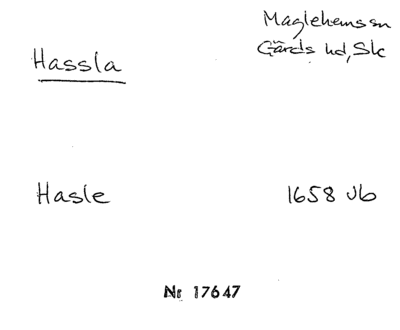 Maglehems sn
Gärds hd, Sk
Hassla
Hasle
1658 Jb
Nr 17647